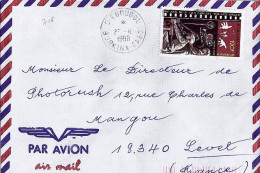 BURKINA-FASO
Monsieur Le Directeur de
Photorush 12, rue Charles de
Mangou
PAR AVION
air mail
18.340 Levet
(France)